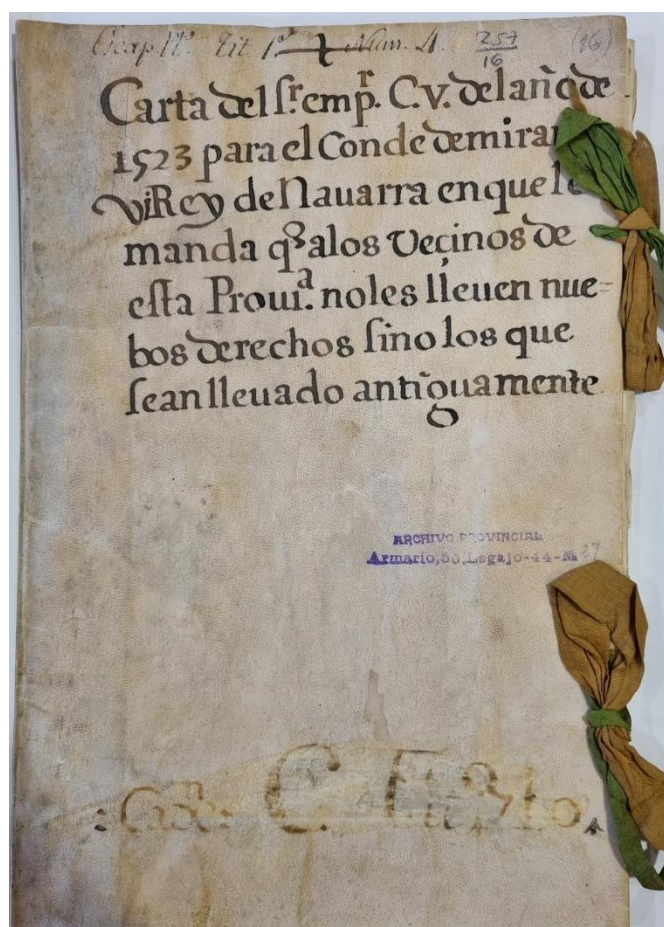 Tit 1º Núm. 4. 257 (16)
16
Carta del sr. empr. C.V. del año de
1523 para el Conde de miran
ViRey de Nauarra en que le
manda qe a los veçinos de
esta Prouia. no les lleuen nue=
bos derechos sino los que
sean lleuado antiguamente
ARCHIVO PROVINCIAL
Armario, 50, Legajo-44-Nº 27